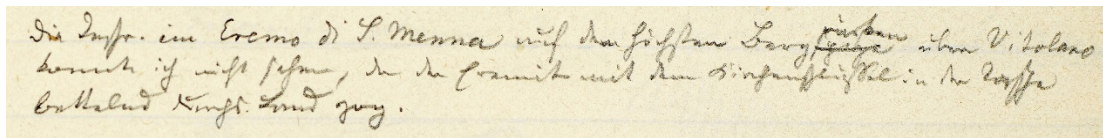 Die Inschr. im Eremo di S. Menna auf dem höchsten Berg rücken über Vitolano
konnte ich nicht sehen, da der Eremit mit dem Kirchenschlüssel in der Tasche
bettelnd durchs Land zog.